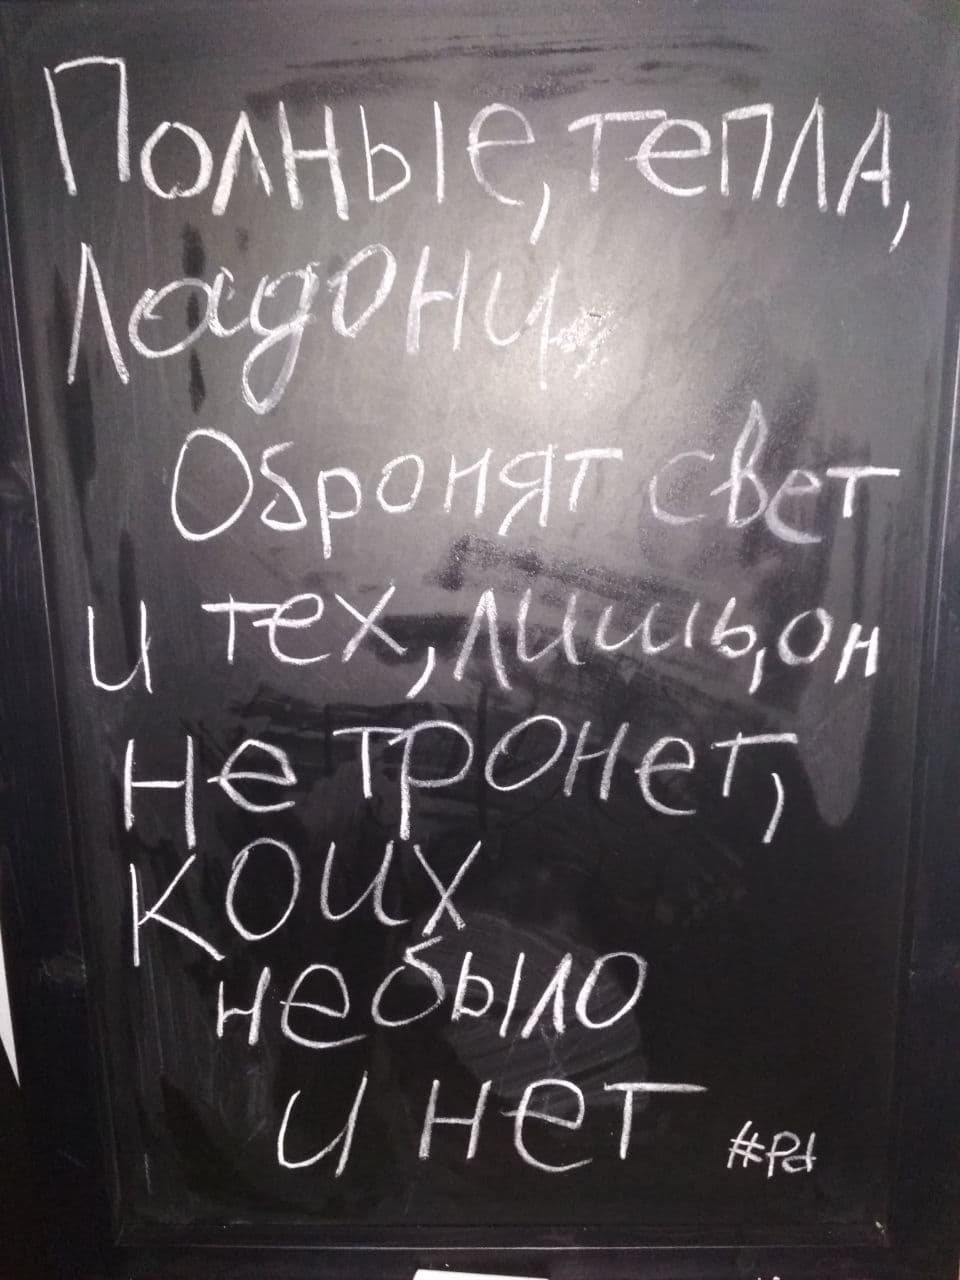 Полные, тепла,
Ладони
Обронят свет
и тех, лишь, он
не тронет,
коих
не было
и нет #Pd